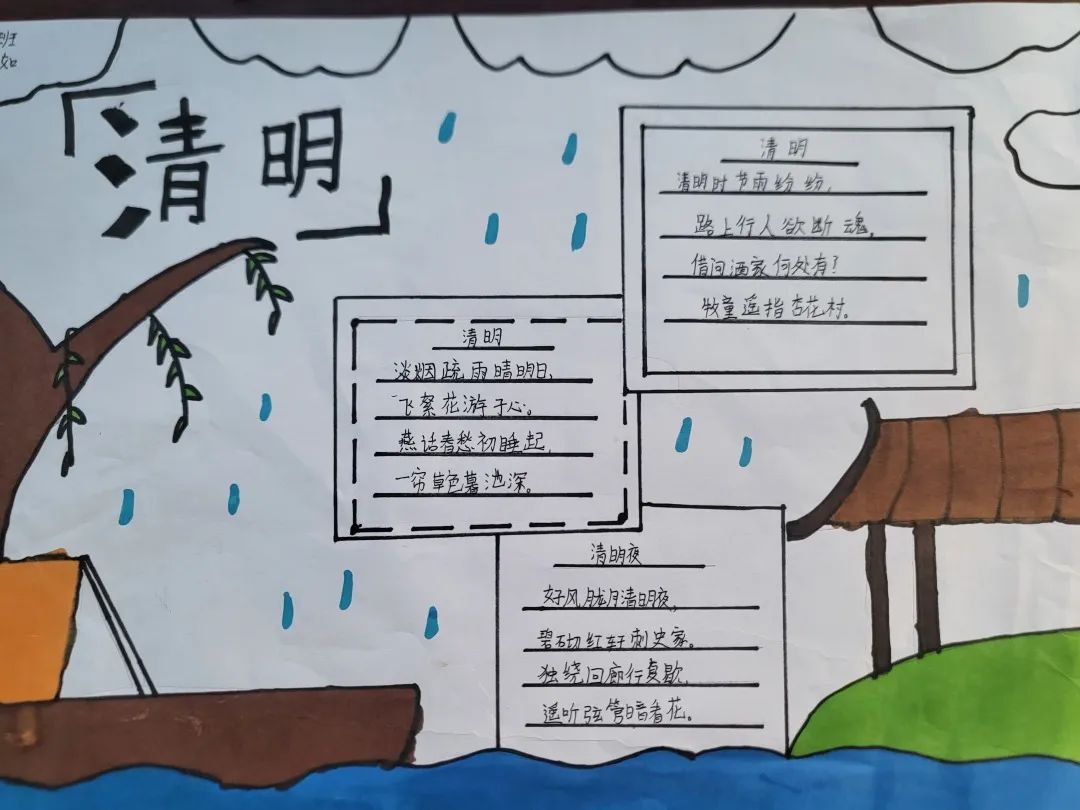 班
如
「清明」
清明
清明时节雨纷纷,
路上行人欲断魂。
借问酒家何处有?
牧童遥指杏花村。
清明
淡烟疏雨晴明日,
飞絮花游子心。
燕话春愁初睡起,
一帘草色暮池深。
清明夜
好风胧月清明夜,
碧砌红轩刺史家。
独绕回廊行复歇,
遥听弦管暗看花。